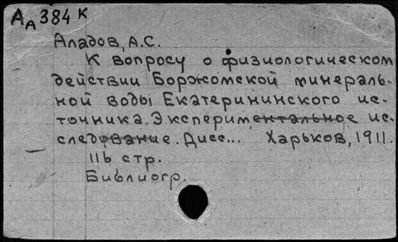 АА384К
Аладов, А.С.
К вопросу о физиологическом
действии Боржомской минераль-
ной воды Екатерининского ис-
точника. Экспериментальное ис-
следование. Дисс... Харьков, 1911.
116 стр.
Библиогр.